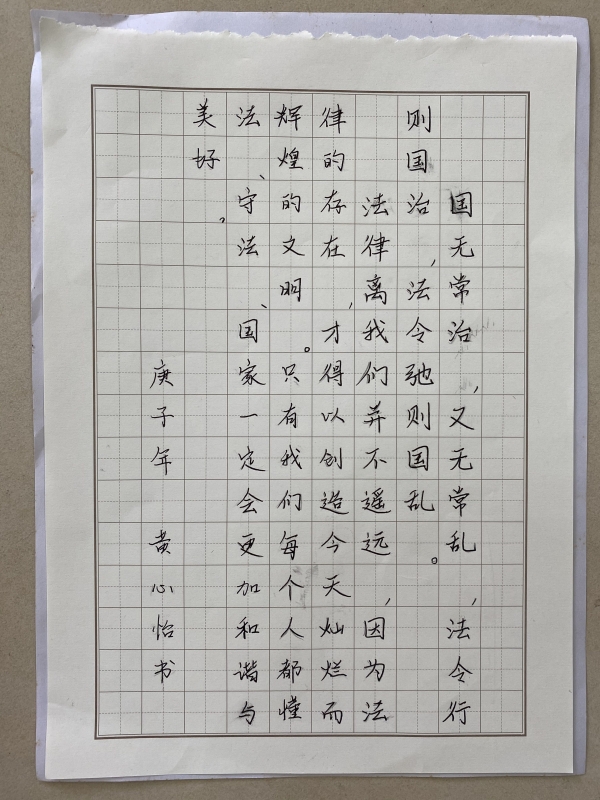 国无常治，又无常乱，法令行
则国治，法令弛则国乱。
法律离我们并不遥远，因为法
律的存在，才得以创造今天灿烂而
辉煌的文明。只有我们每个人都懂
法、守法、国家一定会更加和谐与
美好。
庚子年 黄心怡书